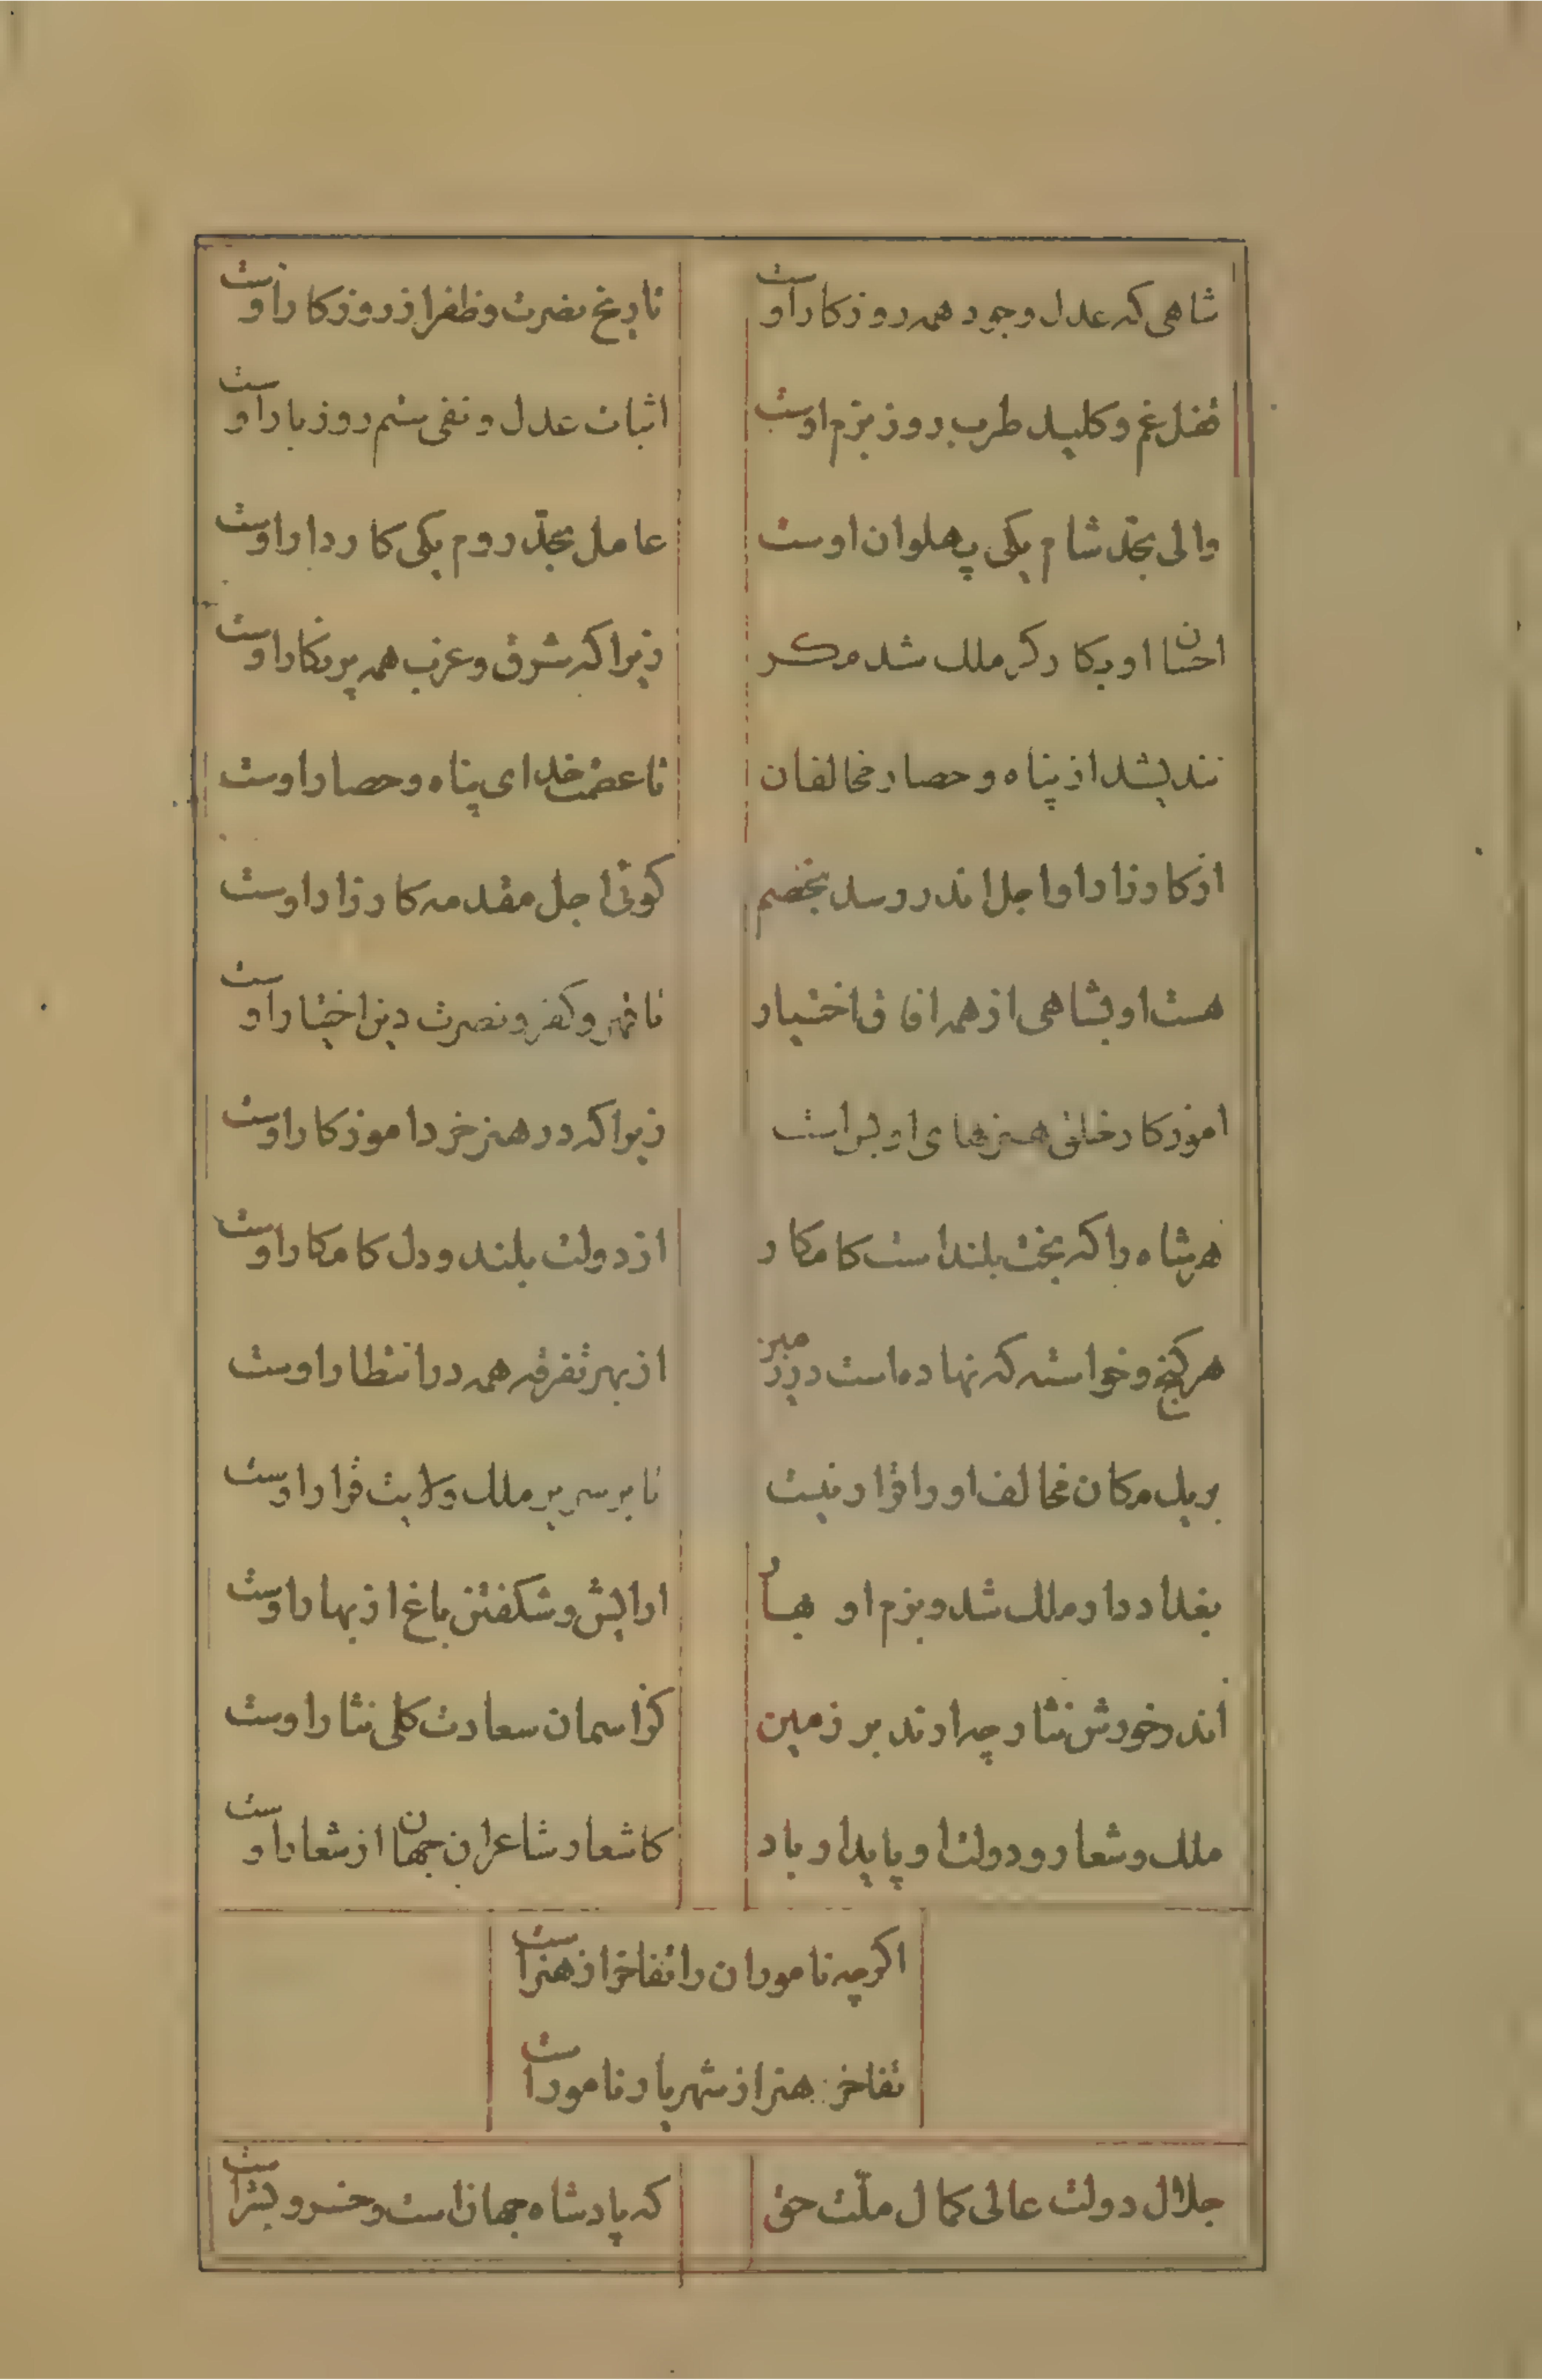 شاهی که عدل وجود همه روزکار اوست
تاریخ نصرت وظفر از روزکار اوست
قفل غم وکلید طرب روز بزم اوست
اثبات عدل ونفی ستم روز بار اوست
والی بحد شام یکی پهلوان اوست
عامل بحد روم یکی کاردار اوست
احسان او بکار کر ملک شد مکر
زیرا که شرق وغرب همه پرنکار اوست
نندیشد از پناه وحصار مخالفان
تا عصمت خدای پناه وحصار اوست
از کارزار او اجل اندر رسد بخصم
کوئی اجل مقدمه کارزار اوست
هست او بشاهی از همه افاق اختیار
تا قهر وکفر ونصرت دین اختیار اوست
اموزکار خلق هنرهای او بس است
زیرا که در هنر خرد اموزکار اوست
هر شاه را که بخت بلند است کامکار
از دولت بلند ودل کامکار اوست
هر کنج وخواسته که نهاده است در زمین
از بهر تفرقه همه در انتظار اوست
بر یل مکان مخالف او را قرار نیست
تا بر سریر ملک ولایت قرار اوست
بغداد دار ملک شد وبزم او بهار
ارایش وشکفتن باغ از بهار اوست
اندر خورش نثار چه ارند بر زمین
کز اسمان سعادت کلی نثار اوست
ملک وشعار ودولت او پایدار باد
کاشعار شاعران جهان از شعار اوست
اکرچه ناموران را تفاخر از هنر است
تفاخر هنر از شهریار نامور است
جلال دولت عالی کمال ملّت حق
که پادشاه جهان است وخسرو بشر است